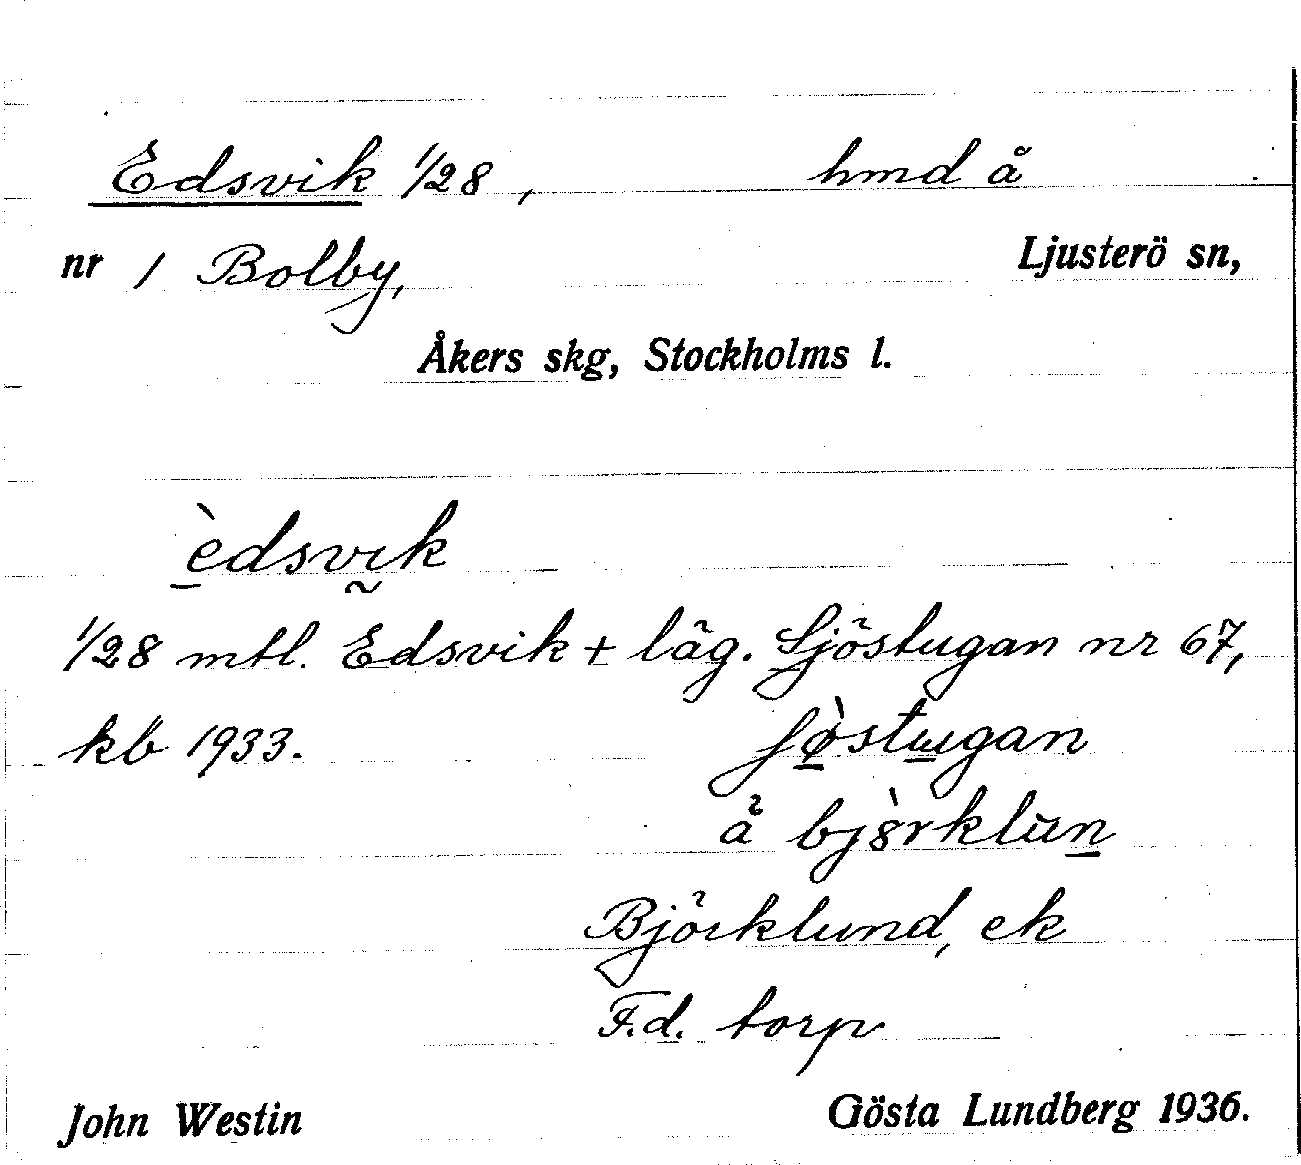 Edsvik 1/28, hmd å
nr 1 Bolby, Ljusterö sn,
Åkers skg, Stockholms l.
èdsvik
1/28 mtl. Edsvik + läg. Sjöstugan nr 67,
kb 1933. ʃø̀stugan
å bjö̀rklun
Björklund, ek
F.d. torp
John Westin Gösta Lundberg 1936.